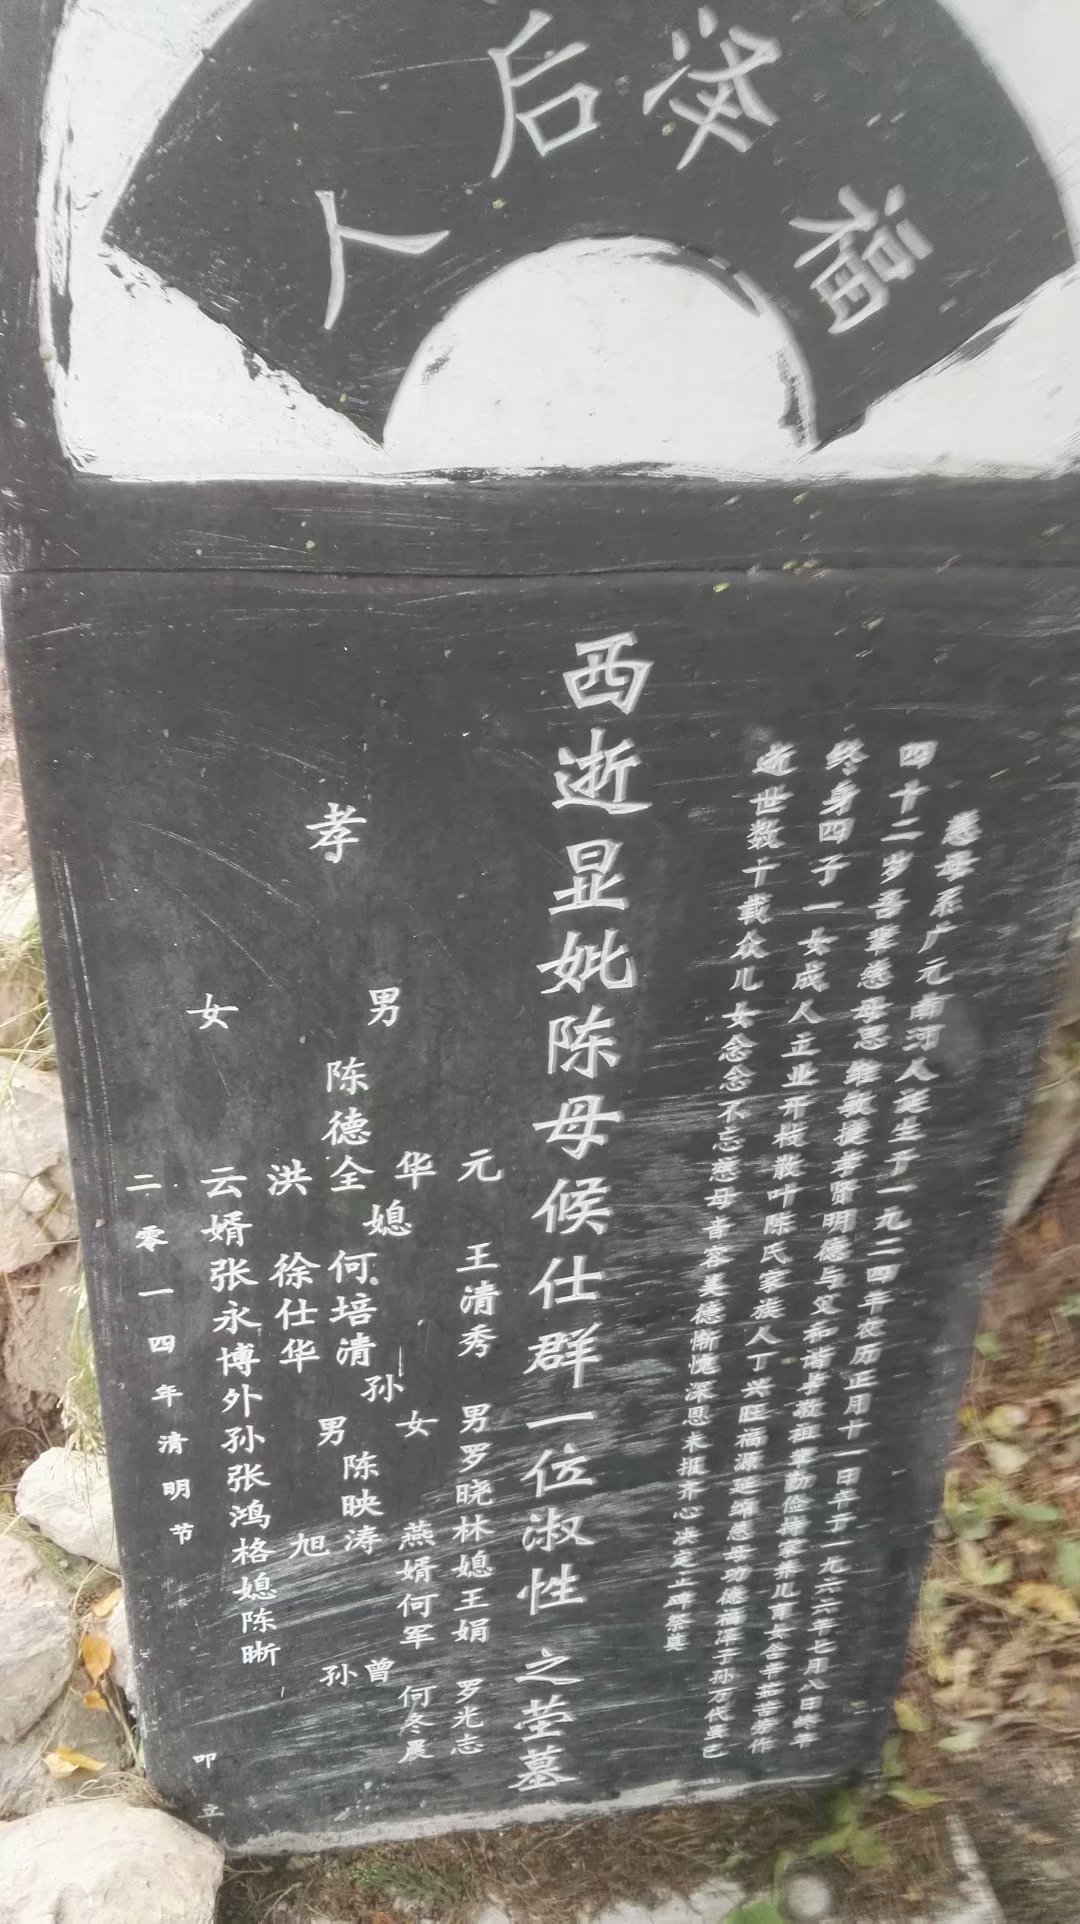 福泽后人
慈母系广元南河人诞生于一九二四年农历正月十一日卒于一九六六年七月八日终年
四十二岁吾辈慈母思维敏捷孝贤明德与父和谐与敬祖辈勤俭持家养儿育女含辛茹苦劳作
终身四子一女成人立业开枝散叶陈氏家族人丁兴旺福源延绵慈母功德福泽子孙万代
逝世数十载众儿女念念不忘慈母音容美德惭愧深恩未报齐心决定立碑祭奠
西逝显妣陈母候仕群一位淑性之茔墓
元 王清秀 男罗晓林媳王娟 罗光志
华 女 燕婿何军 何冬晨
孝 男 媳 孙 曾
陈德全 何培清 男 陈映涛 孙
洪 徐仕华 旭
女 云婿张永博外孙张鸿格媳陈晰
二零一四年清明节 叩立